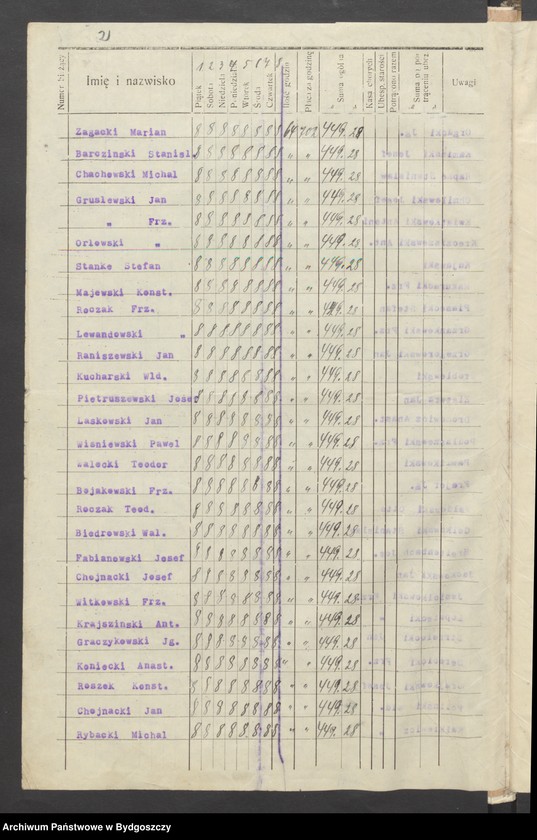 21
1 2 3 4 5 6 7 8
Numer bieżący Imię i nazwisko Piątek Sobota Niedziela Poniedział. Wtorek Środa Czwartek Ilość godzin Płaca za godzinę Suma ogólna Kasa chorych Ubesp. starości Potrącono razem Suma na potrąceniu ubez. Uwagi
Zagacki Marian 8 8 8 8 8 8 8 8 64 702 449.28
Barozinski Stanisl. 8 8 8 8 8 8 8 8 " " 449.28
Chachowski Michal 8 8 8 8 8 8 8 8 " " 449.28
Gruslewski Jan 8 8 8 8 8 8 8 8 " " 449.28
" Frz. 8 8 8 8 8 8 8 8 " " 449.28
Orlewski " 8 8 8 8 8 8 8 8 " " 449.28
Stanke Stefan 8 8 8 8 8 8 8 8 " " 449.28
Majewski Konst. 8 8 8 8 8 8 8 8 " " 449.28
Roczak Frz. 8 8 8 8 8 8 8 8 " " 449.28
Lewandowski " 8 8 8 8 8 8 8 8 " " 449.28
Raniszewski Jan 8 8 8 8 8 8 8 8 " " 449.28
Kucharski Wld. 8 8 8 8 8 8 8 8 " " 449.28
Pietruszewski Josef 8 8 8 8 8 8 8 8 " " 449.28
Laskowski Jan 8 8 8 8 8 8 8 8 " " 449.28
Wisniewski Pawel 8 8 8 8 8 8 8 8 " " 449.28
Walecki Teodor 8 8 8 8 8 8 8 8 " " 449.28
Bojakowski Frz. 8 8 8 8 8 8 8 8 " " 449.28
Roczak Teod. 8 8 8 8 8 8 8 8 " " 449.28
Biedrowski Wal. 8 8 8 8 8 8 8 8 " " 449.28
Fabianowski Josef 8 8 8 8 8 8 8 8 " " 449.28
Chojnacki Josef 8 8 8 8 8 8 8 8 " " 449.28
Witkowski Frz. 8 8 8 8 8 8 8 8 " " 449.28
Krajszinski Ant. 8 8 8 8 8 8 8 8 " " 449.28
Graczykowski Jg. 8 8 8 8 8 8 8 8 " " 449.28
Koniecki Anast. 8 8 8 8 8 8 8 8 " " 449.28
Roszek Konst. 8 8 8 8 8 8 8 8 " " 449.28
Chojnacki Jan 8 8 8 8 8 8 8 8 " " 449.28
Rybacki Michal 8 8 8 8 8 8 8 8 " " 449.28
Archiwum Państwowe w Bydgoszczy